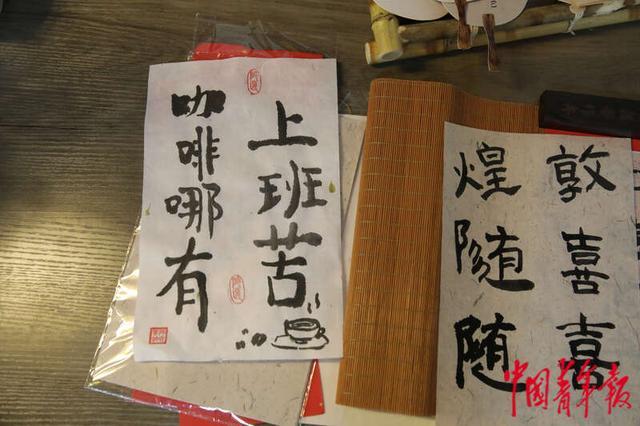 咖啡哪有
上班苦
敦喜喜
煌随随
中国青年报